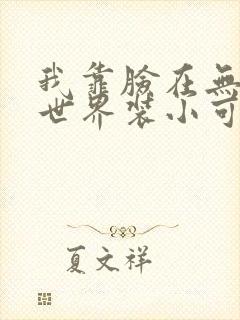 我靠臉在無
世界裝小可
夏文祥